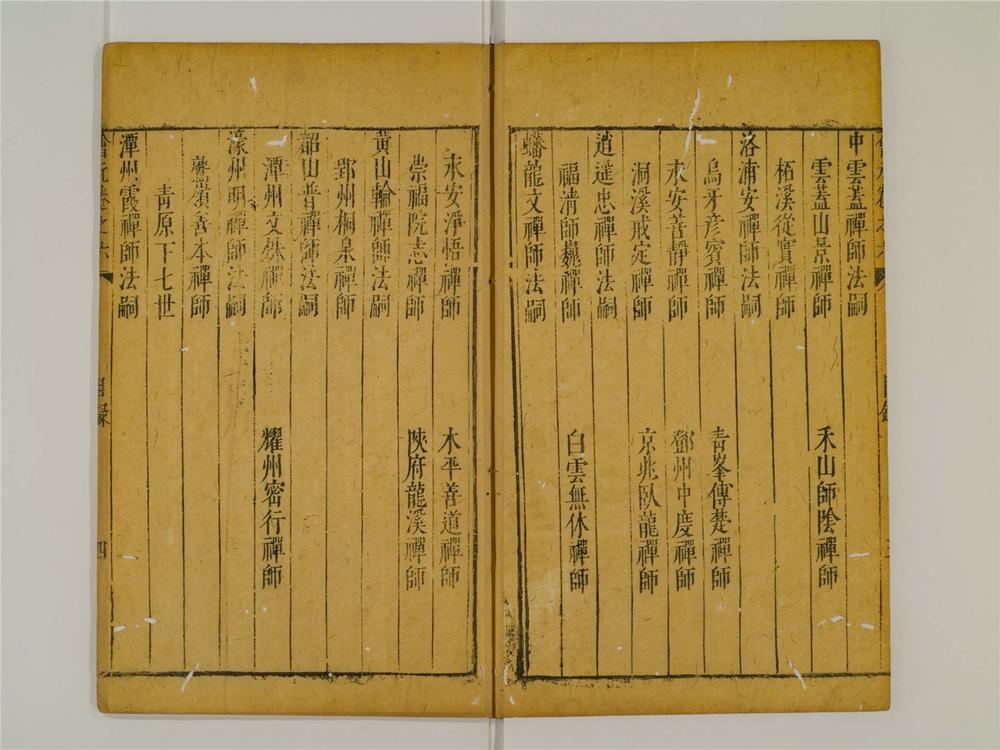 中雲蓋禪師法嗣
雲蓋山景禪師　禾山師陰禪師
柘溪從實禪師
洛浦安禪師法嗣
烏牙彥賓禪師　青峯傳楚禪師
永安善靜禪師　鄧州中度禪師
洞溪戒定禪師　京兆臥龍禪師
逍遙忠禪師法嗣
福清師巍禪師　白雲無休禪師
蟠龍文禪師法嗣
永安淨悟禪師　木平善道禪師
崇福院志禪師　陝府龍溪禪師
黃山輪禪師法嗣
郢州桐泉禪師
韶山普禪師法嗣
潭州文殊禪師　耀州密行禪師
濠州明禪師法嗣
鷲嶺善本禪師
青原下七世
潭州霞禪師法嗣
會元卷之六　目錄　四